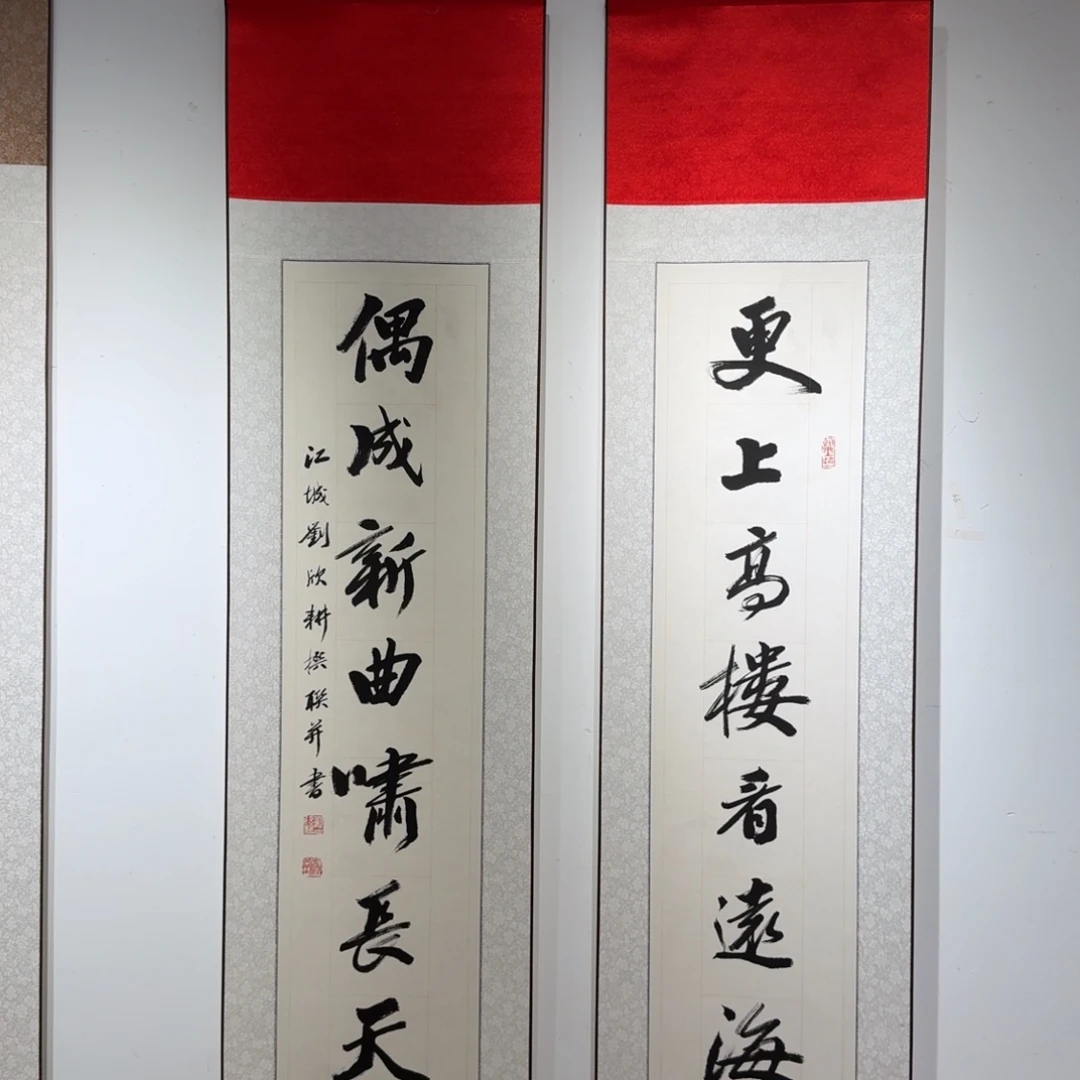 更上高樓看遠海
偶成新曲嘯長天
江城劉欣耕撰聯并書